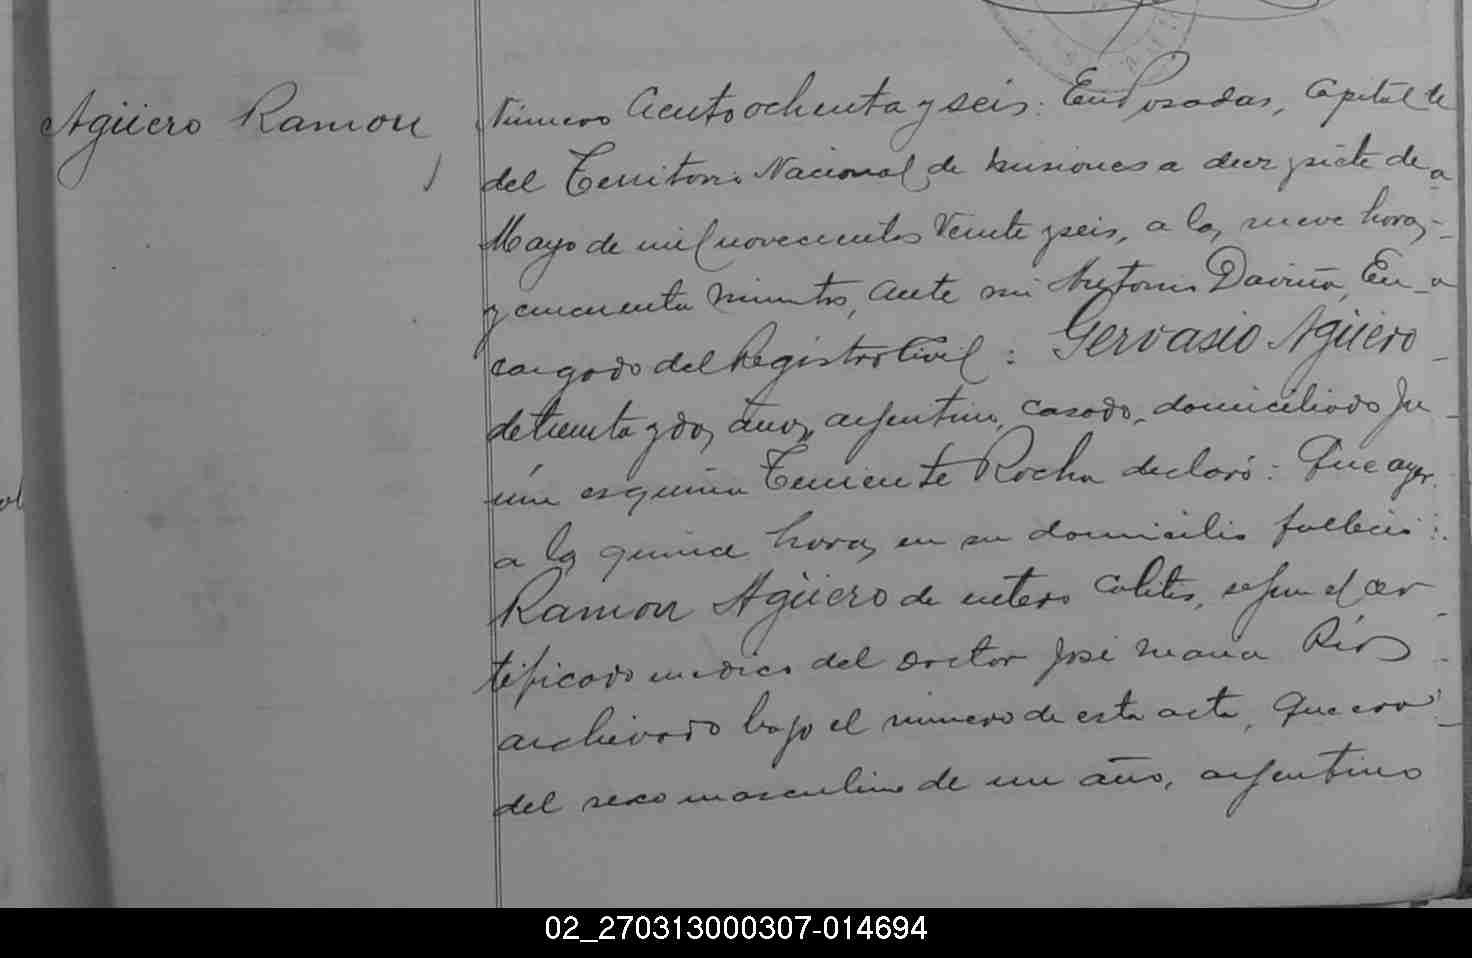 Agüero Ramon
Número Ciento ochenta y seis: En Posadas, Capital
del Territorio Nacional de Misiones a diez y siete de
Mayo de mil novecientos Veinte y seis, a las nueve horas
y cincuenta minutos, ante mi Antonio Daviña, En
cargado del Registro Civil: Gervasio Agüero
de treinta y dos años, argentino, casado, domiciliado Ju
nín esquina Teniente Rocha declaró: Que ayer
a las quince horas, en su domicilio falleció:
Ramon Agüero de entero Colitis, segun el cer
tificado medico del doctor José Maria Ríos
archivado bajo el número de esta acta, Que era
del sexo masculino de un año, argentino
02_270313000307-014694